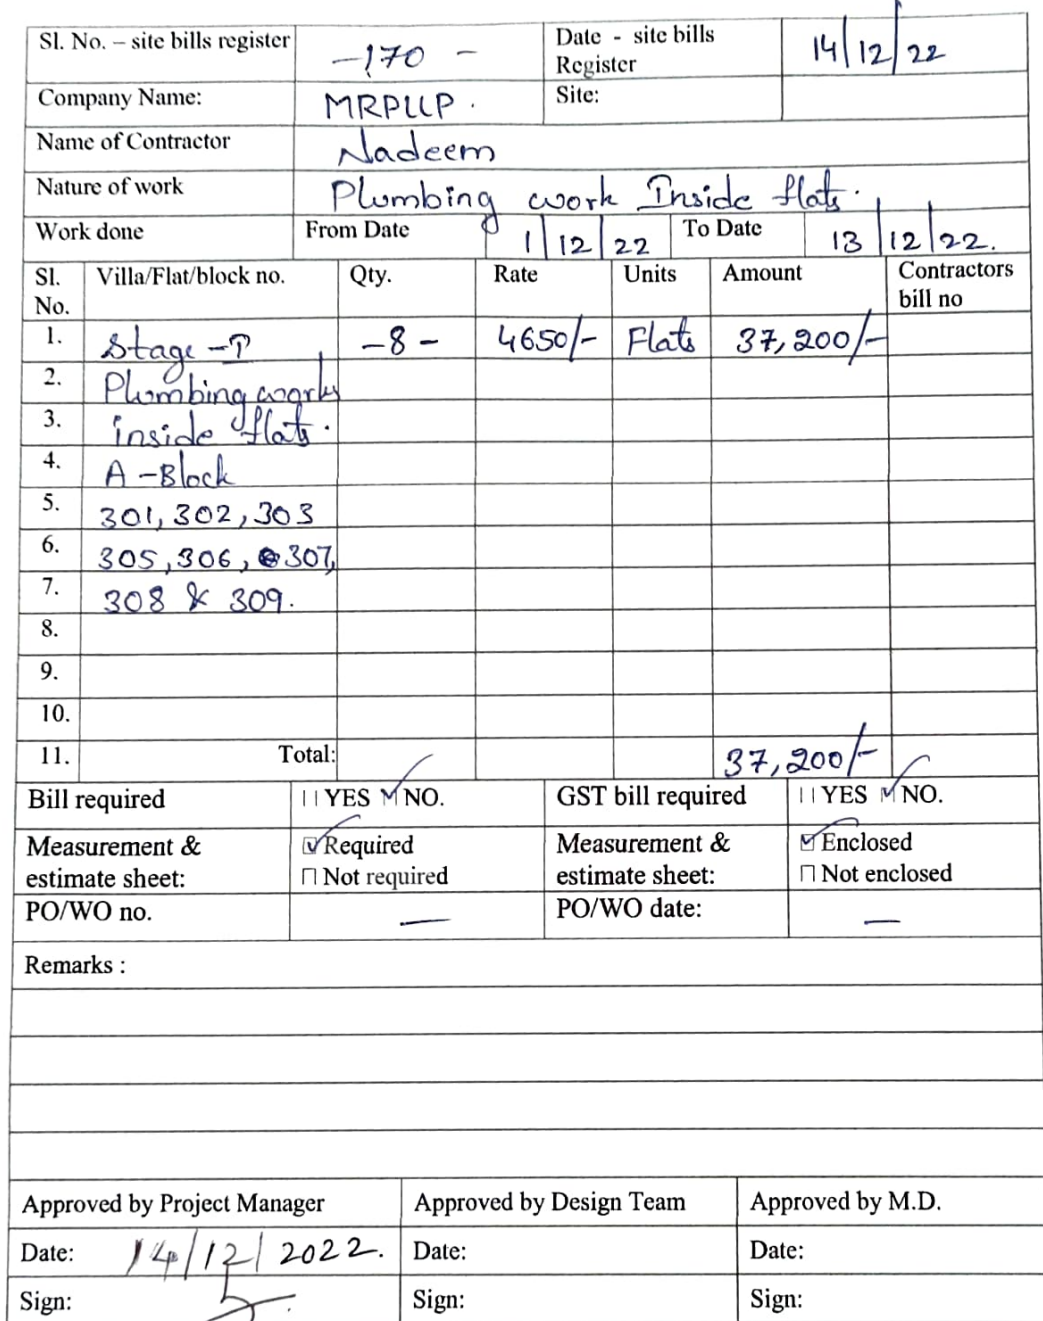 Sl. No. – site bills register -170 - Date - site bills Register 14/12/22
Company Name: MRPLLP. Site:
Name of Contractor Nadeem
Nature of work Plumbing work Inside flats.
Work done From Date 1/12/22 To Date 13/12/22.
Sl. No. Villa/Flat/block no. Qty. Rate Units Amount Contractors bill no
1. Stage -I -8- 4650/- Flats 37,200/-
2. Plumbing works
3. inside flats.
4. A-Block
5. 301, 302, 303
6. 305, 306, 307,
7. 308 & 309.
8.
9.
10.
11. Total: 37,200/-
Bill required YES NO. GST bill required YES NO.
Measurement & estimate sheet: Required Not required Measurement & estimate sheet: Enclosed Not enclosed
PO/WO no. — PO/WO date: —
Remarks :
Approved by Project Manager Approved by Design Team Approved by M.D.
Date: 14/12/2022. Date: Date:
Sign: Sign: Sign: